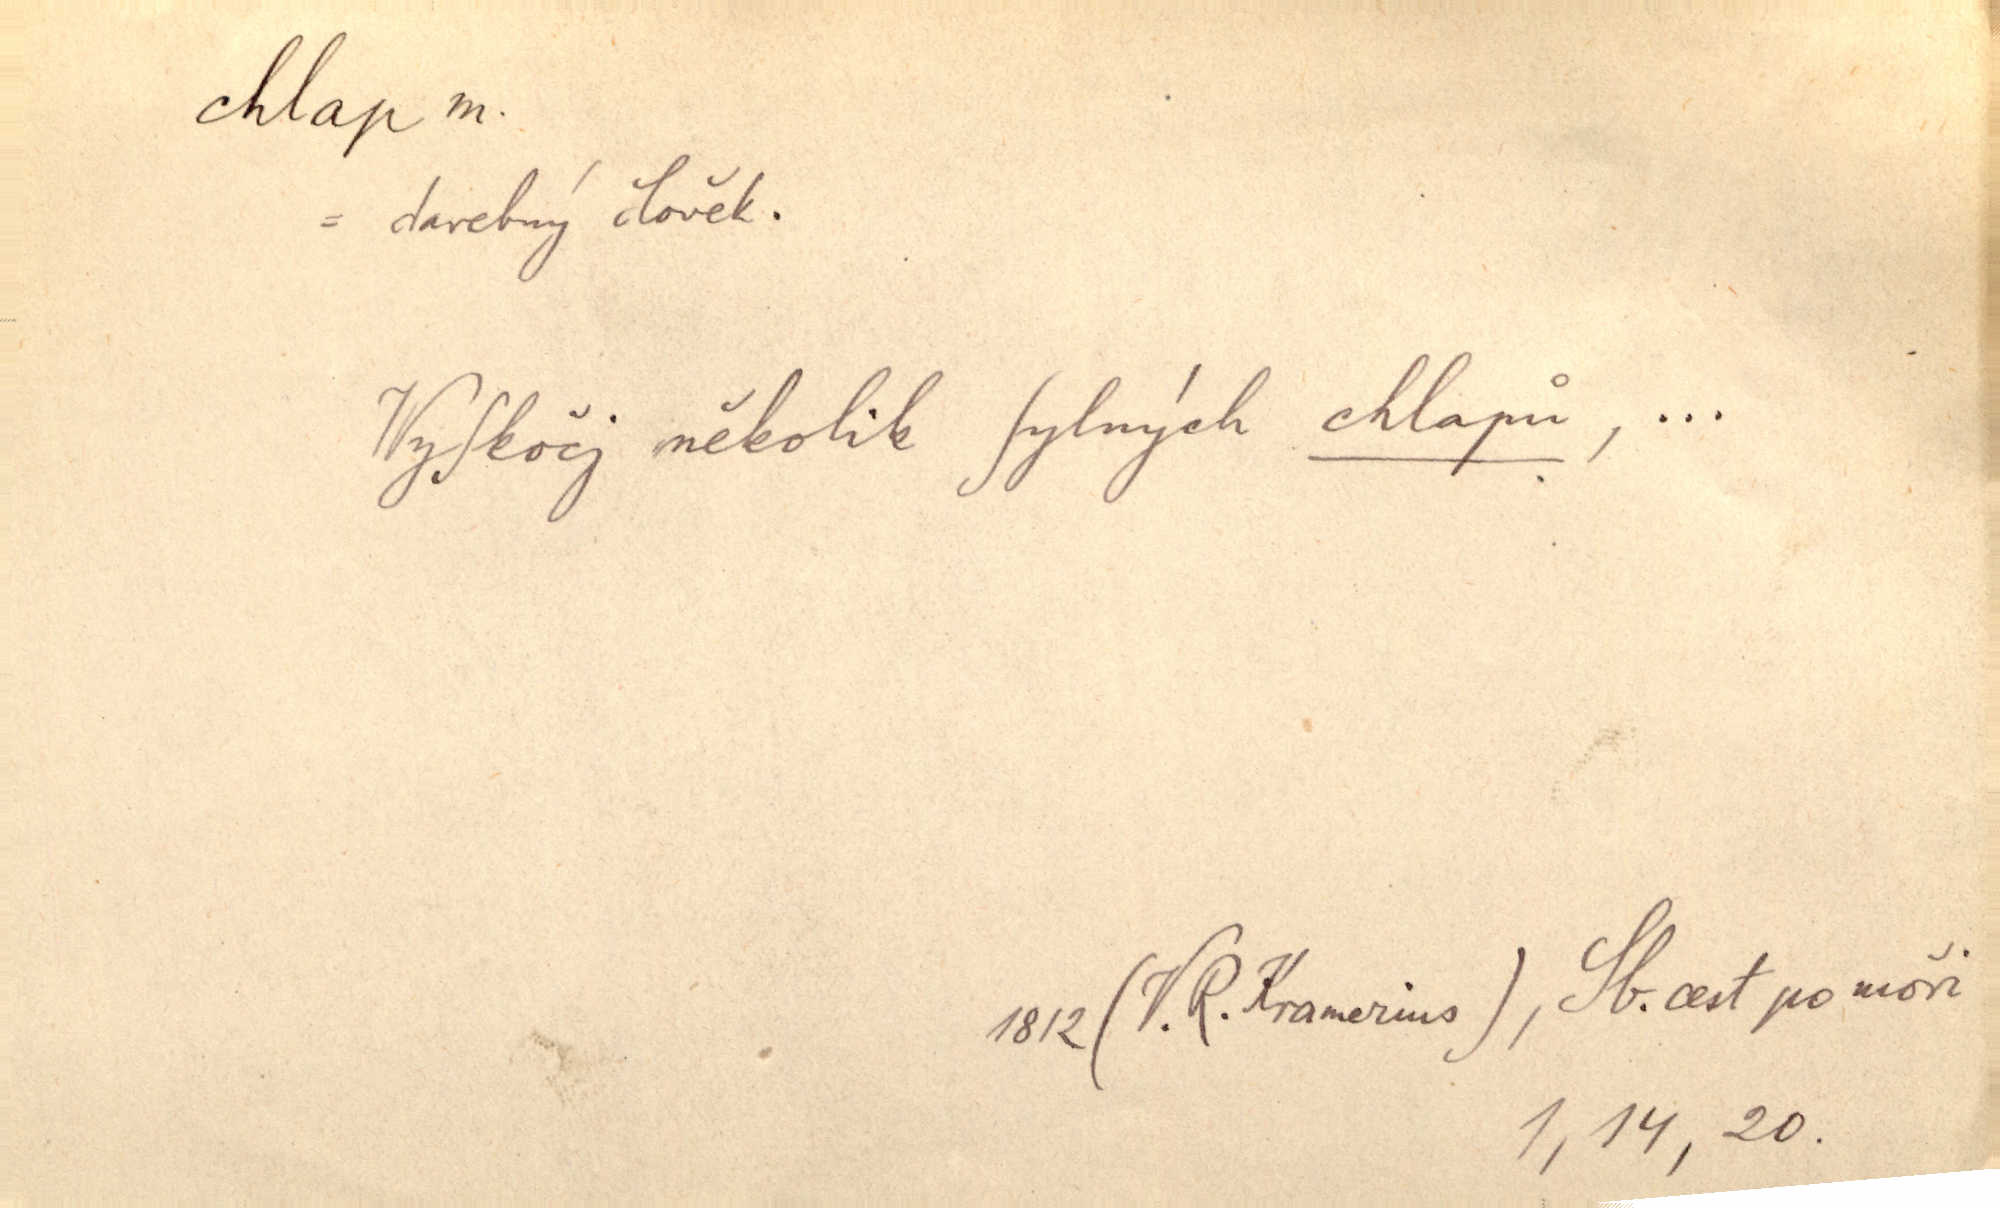 chlap m.
= darebný člověk.
Vyſkočj několik ſylných chlapů, ...
1812 (V. R. Kramerius), Sb. cest po moři
1, 14, 20.